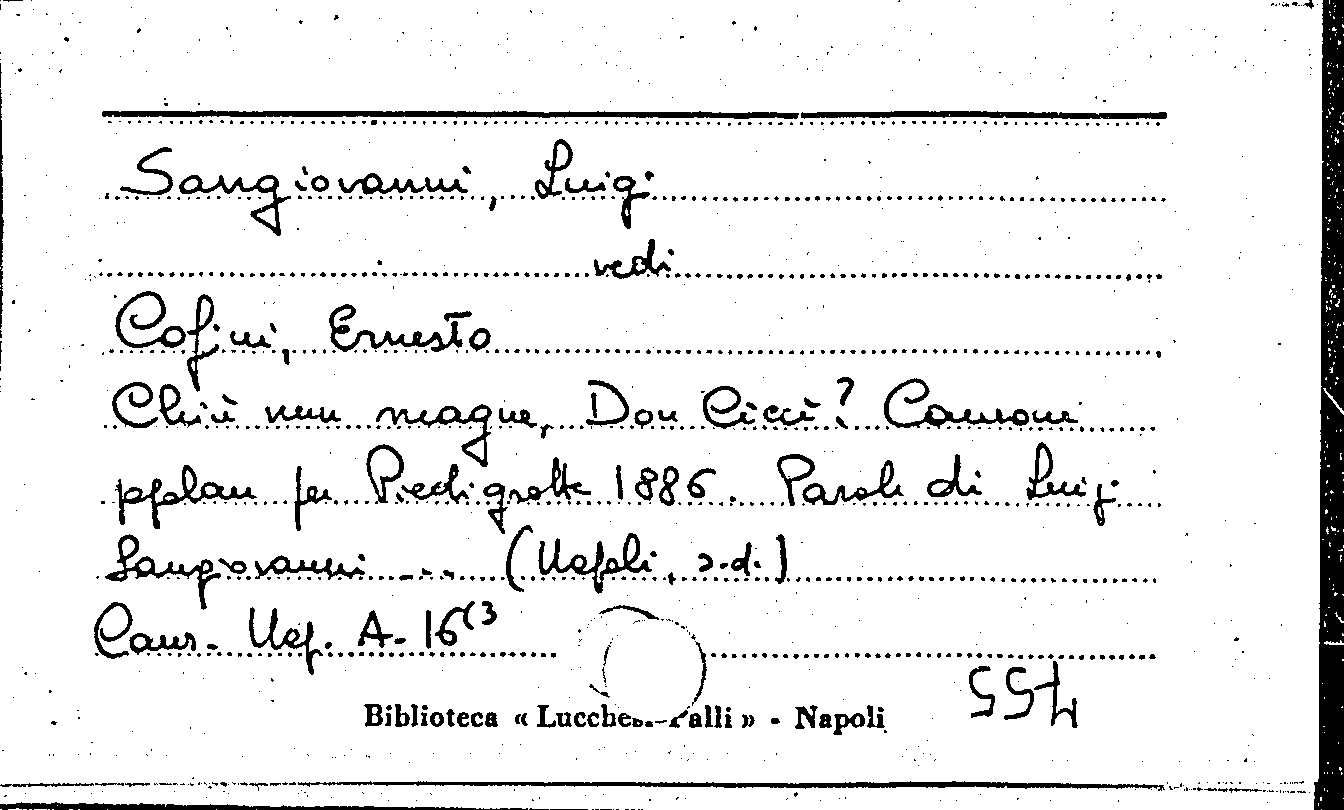 Sangiovanni, Luigi
vedi
Cofini, Ernesto
Chiù nun magne, Don Ciccì? Canzone
ppolan per Piedigrotta 1886. Parole di Luigi
Sangiovanni ... (Napoli, s.d.)
Canz. Nap. A. 16(3
Biblioteca « Lucchesi-Palli » - Napoli
455